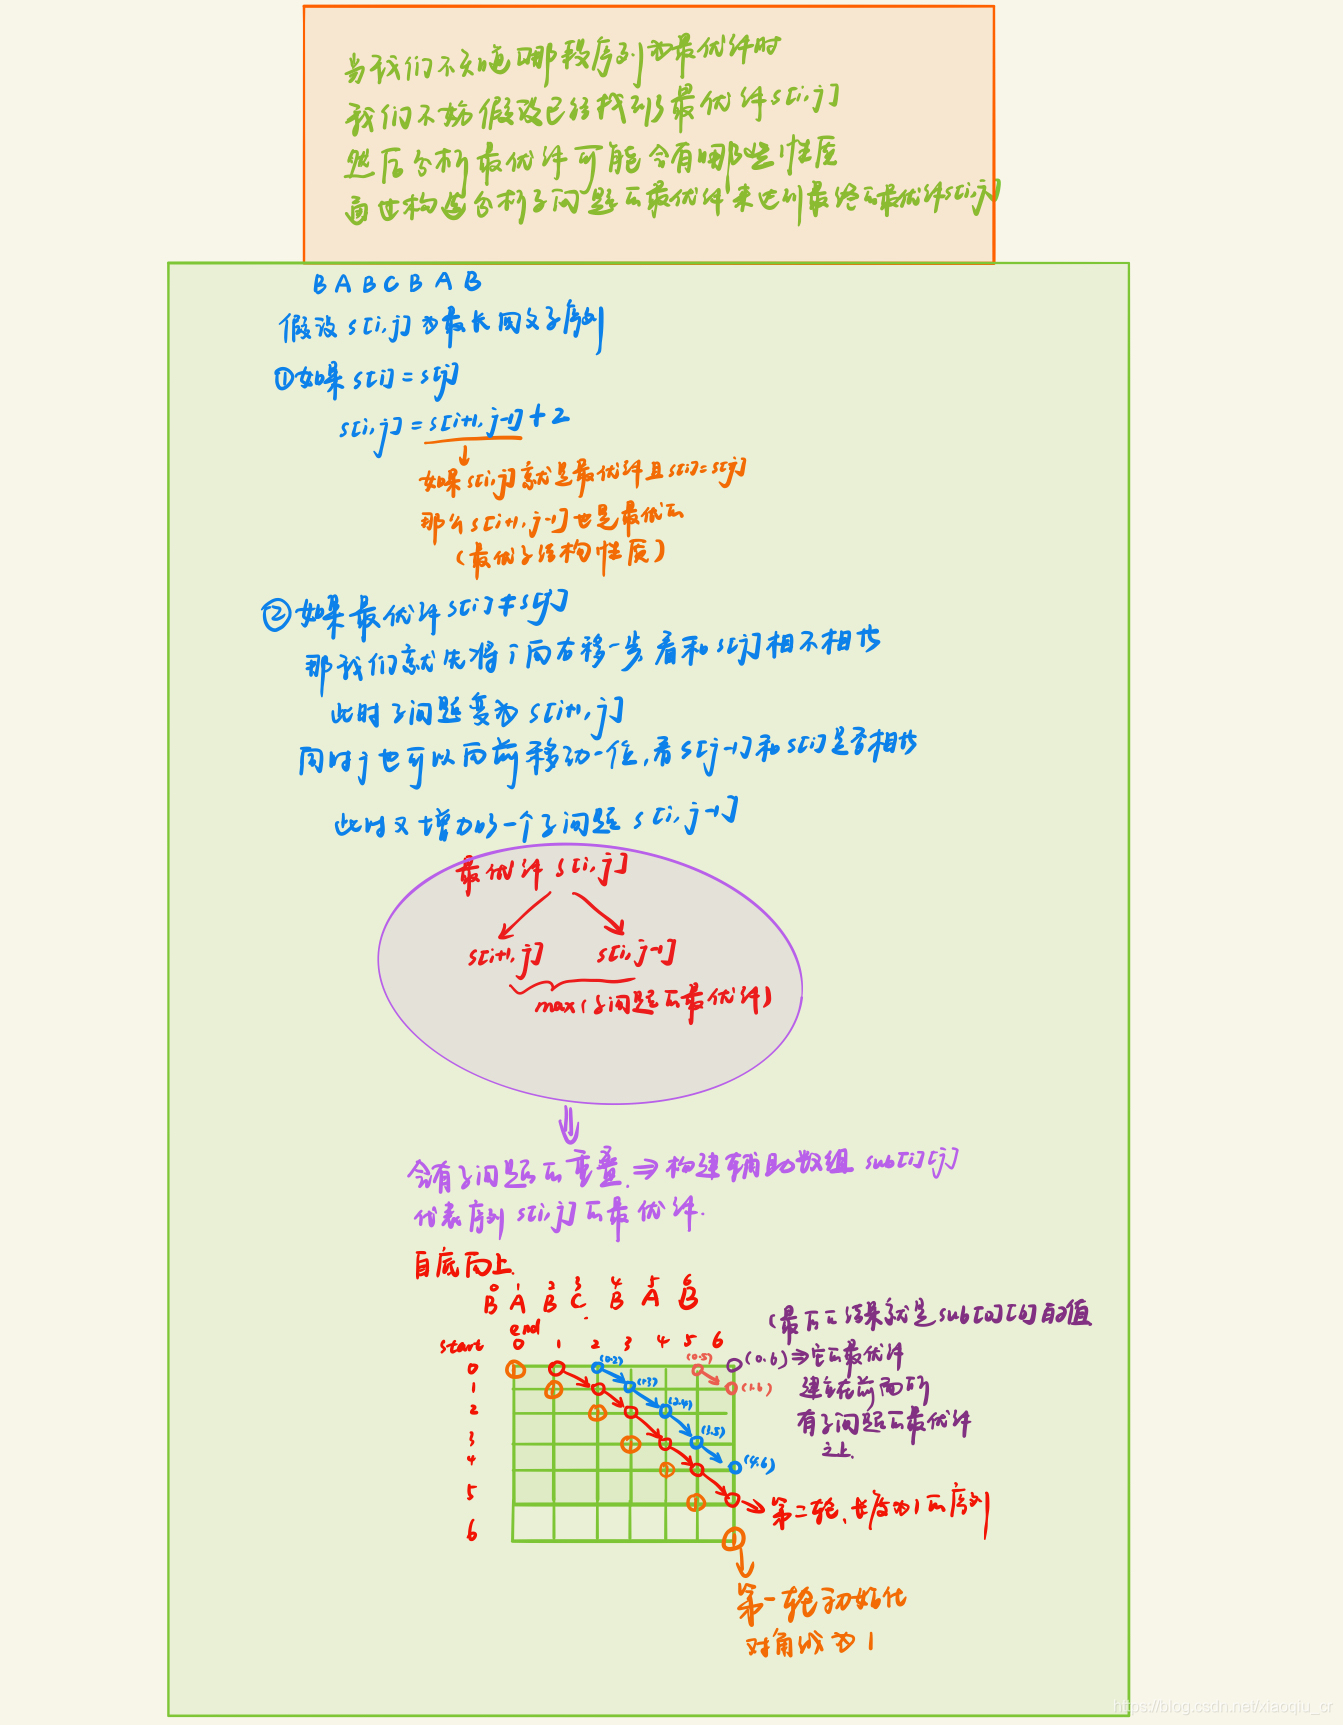 当我们不知道哪段序列为最优解时
我们不妨假设已经找到了最优解s[i,j]
然后分析最优解可能会有哪些性质
通过构造分析子问题的最优解来达到最终的最优解s[i,j]
B A B C B A B
假设 s[i,j] 为最长回文子序列
①如果 s[i] = s[j]
s[i,j] = s[i+1, j-1] + 2
如果 s[i,j] 就是最优解且 s[i]=s[j]
那么 s[i+1, j-1] 也是最优的
(最优子结构性质)
②如果最优解 s[i] ≠ s[j]
那我们就先将 i 向右移一步,看和 s[j] 相不相等
此时子问题变为 s[i+1, j]
同时 j 也可以向前移动一位,看 s[j-1] 和 s[i] 是否相等
此时又增加了一个子问题 s[i, j-1]
最优解 s[i, j]
s[i+1, j] s[i, j-1]
max(子问题的最优解)
会有子问题的重叠. ⇒ 构建辅助数组 sub[i][j]
代表序列 s[i,j] 的最优解.
自底向上.
0 1 2 3 4 5 6
B A B C B A B
end
start 0 1 2 3 4 5 6
0
1
2
3
4
5
6
(0.2)
(1.3)
(2.4)
(3.5)
(4.6)
(0.5)
(1.6)
(最后的结果就是sub[0][6]的值
(0.6) ⇒ 它的最优解
建立在前面所
有子问题的最优解
之上.
第二轮,长度为1的序列
第一轮初始化
对角线为1
https://blog.csdn.net/xiaoqiu_cr